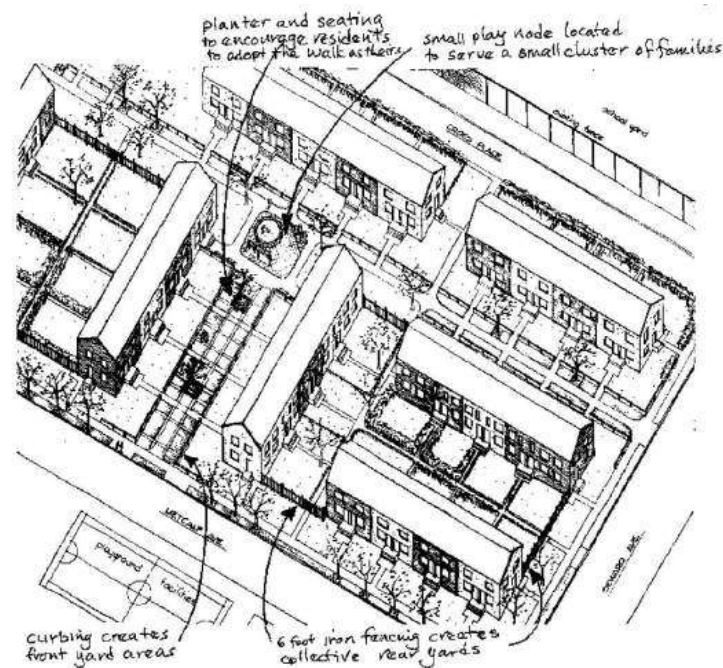 planter and seating
to encourage residents
to adopt the walk as theirs
small play node located
to serve a small cluster of families
school yard
existing fence
CROSS PLACE
playground
facilities
curbing creates
front yard areas
6 foot iron fencing creates
collective rear yards
SEWARD AVE